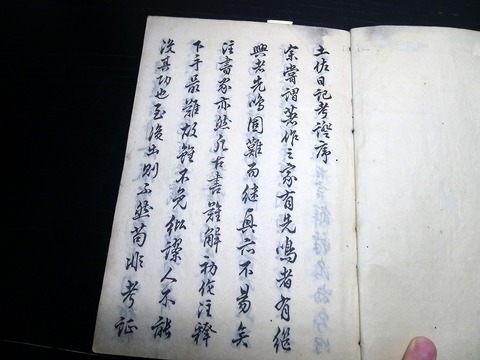 土佐日記考證序
余嘗謂著作之家有先鳴者有継
興者先鳴固難而継亦不易矣
注書家亦然凡古書難解初作注釋
下手最難故雖不免紕謬人不能
没其功也至後出則不然苟非考証